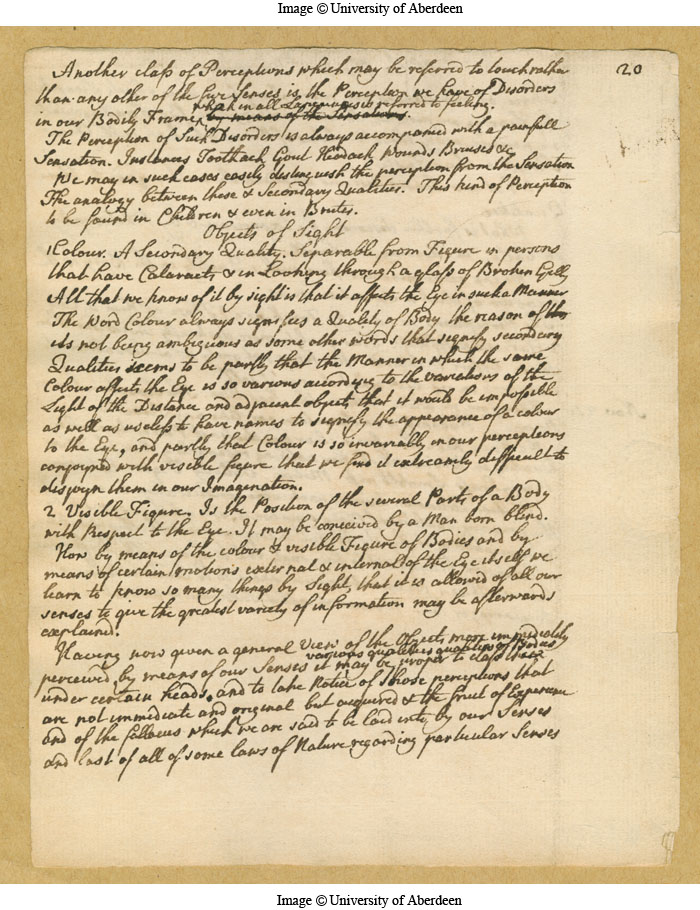 Image © University of Aberdeen
20
Another class of Perceptions which may be referred to touch rather
than any other of the five Senses is, the Perception we have of Disorders
which in all Languages is referred to feeling.
in our Bodily Frame by means of the Sensations.
The Perception of Such Disorders is always accompanied with a painfull
Sensation. Instances Toothach Gout Headach Wounds Bruises &c
We may in such cases easily distinguish the perception from the Sensation
The analogy between these & Secondary Qualities. This kind of Perception
to be found in Children & even in Brutes.
Objects of Sight
1 Colour. A Secondary Quality. Separable from Figure in persons
that have Cataracts & in Looking through a glass of Broken Gelly
All that we know of it by sight is that it affects the Eye in such a Manner
The Word Colour always signifies a Quality of Body the reason of
its not being ambiguous as some other words that signify secondary
Qualities seems to be partly that the Manner in which the same
Colour affects the Eye is so various according to the variations of the
Light of the Distance and adjacent objects that it would be impossible
as well as useless to have names to signify the appearance of a colour
to the Eye, and partly that Colour is so invariably in our perceptions
conjoyned with visible figure that we find it extreamly difficult to
disjoyn them in our Imagination.
2 Visible Figure. Is the Position of the several Parts of a Body
with Respect to the Eye. It may be conceived by a Man born blind.
How by means of the colour & visible Figure of Bodies and by
means of certain motions external & internal of the Eye itself we
learn to know so many things by Sight, that it is allowed of all our
senses to give the greatest variety of information may be afterwards
explained.
Having now given a general View of the Objects more immediatly
various qualities of Bodies
perceived by means of our Senses it may be proper to class
under certain heads, and to take Notice of those perceptions that
are not immediate and original but acquired & the fruit of Experience
and of the fallacies which we are said to be laid into by our Senses
and last of all of some laws of Nature regarding particular Senses
Image © University of Aberdeen